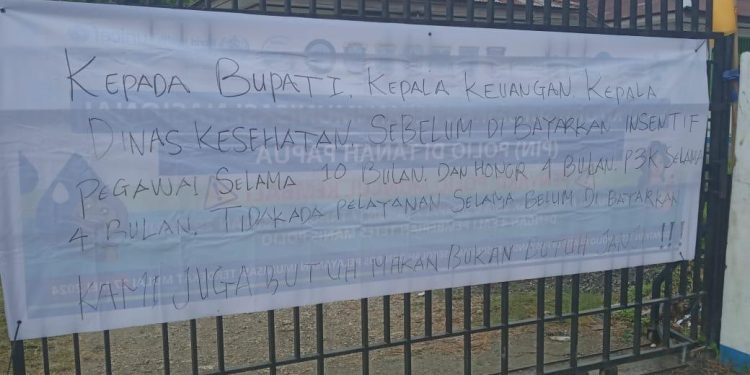 KEPADA BUPATI. KEPALA KEUANGAN. KEPALA
DINAS KESEHATAN SEBELUM DI BAYARKAN INSENTIF
PEGAWAI SELAMA 10 BULAN. DAN HONOR 4 BULAN. P3K SELAMA
4 BULAN. TIDAK ADA PELAYANAN SELAMA BELUM DI BAYARKAN
KAMI JUGA BUTUH MAKAN BUKAN BUTUH JANJI !!!